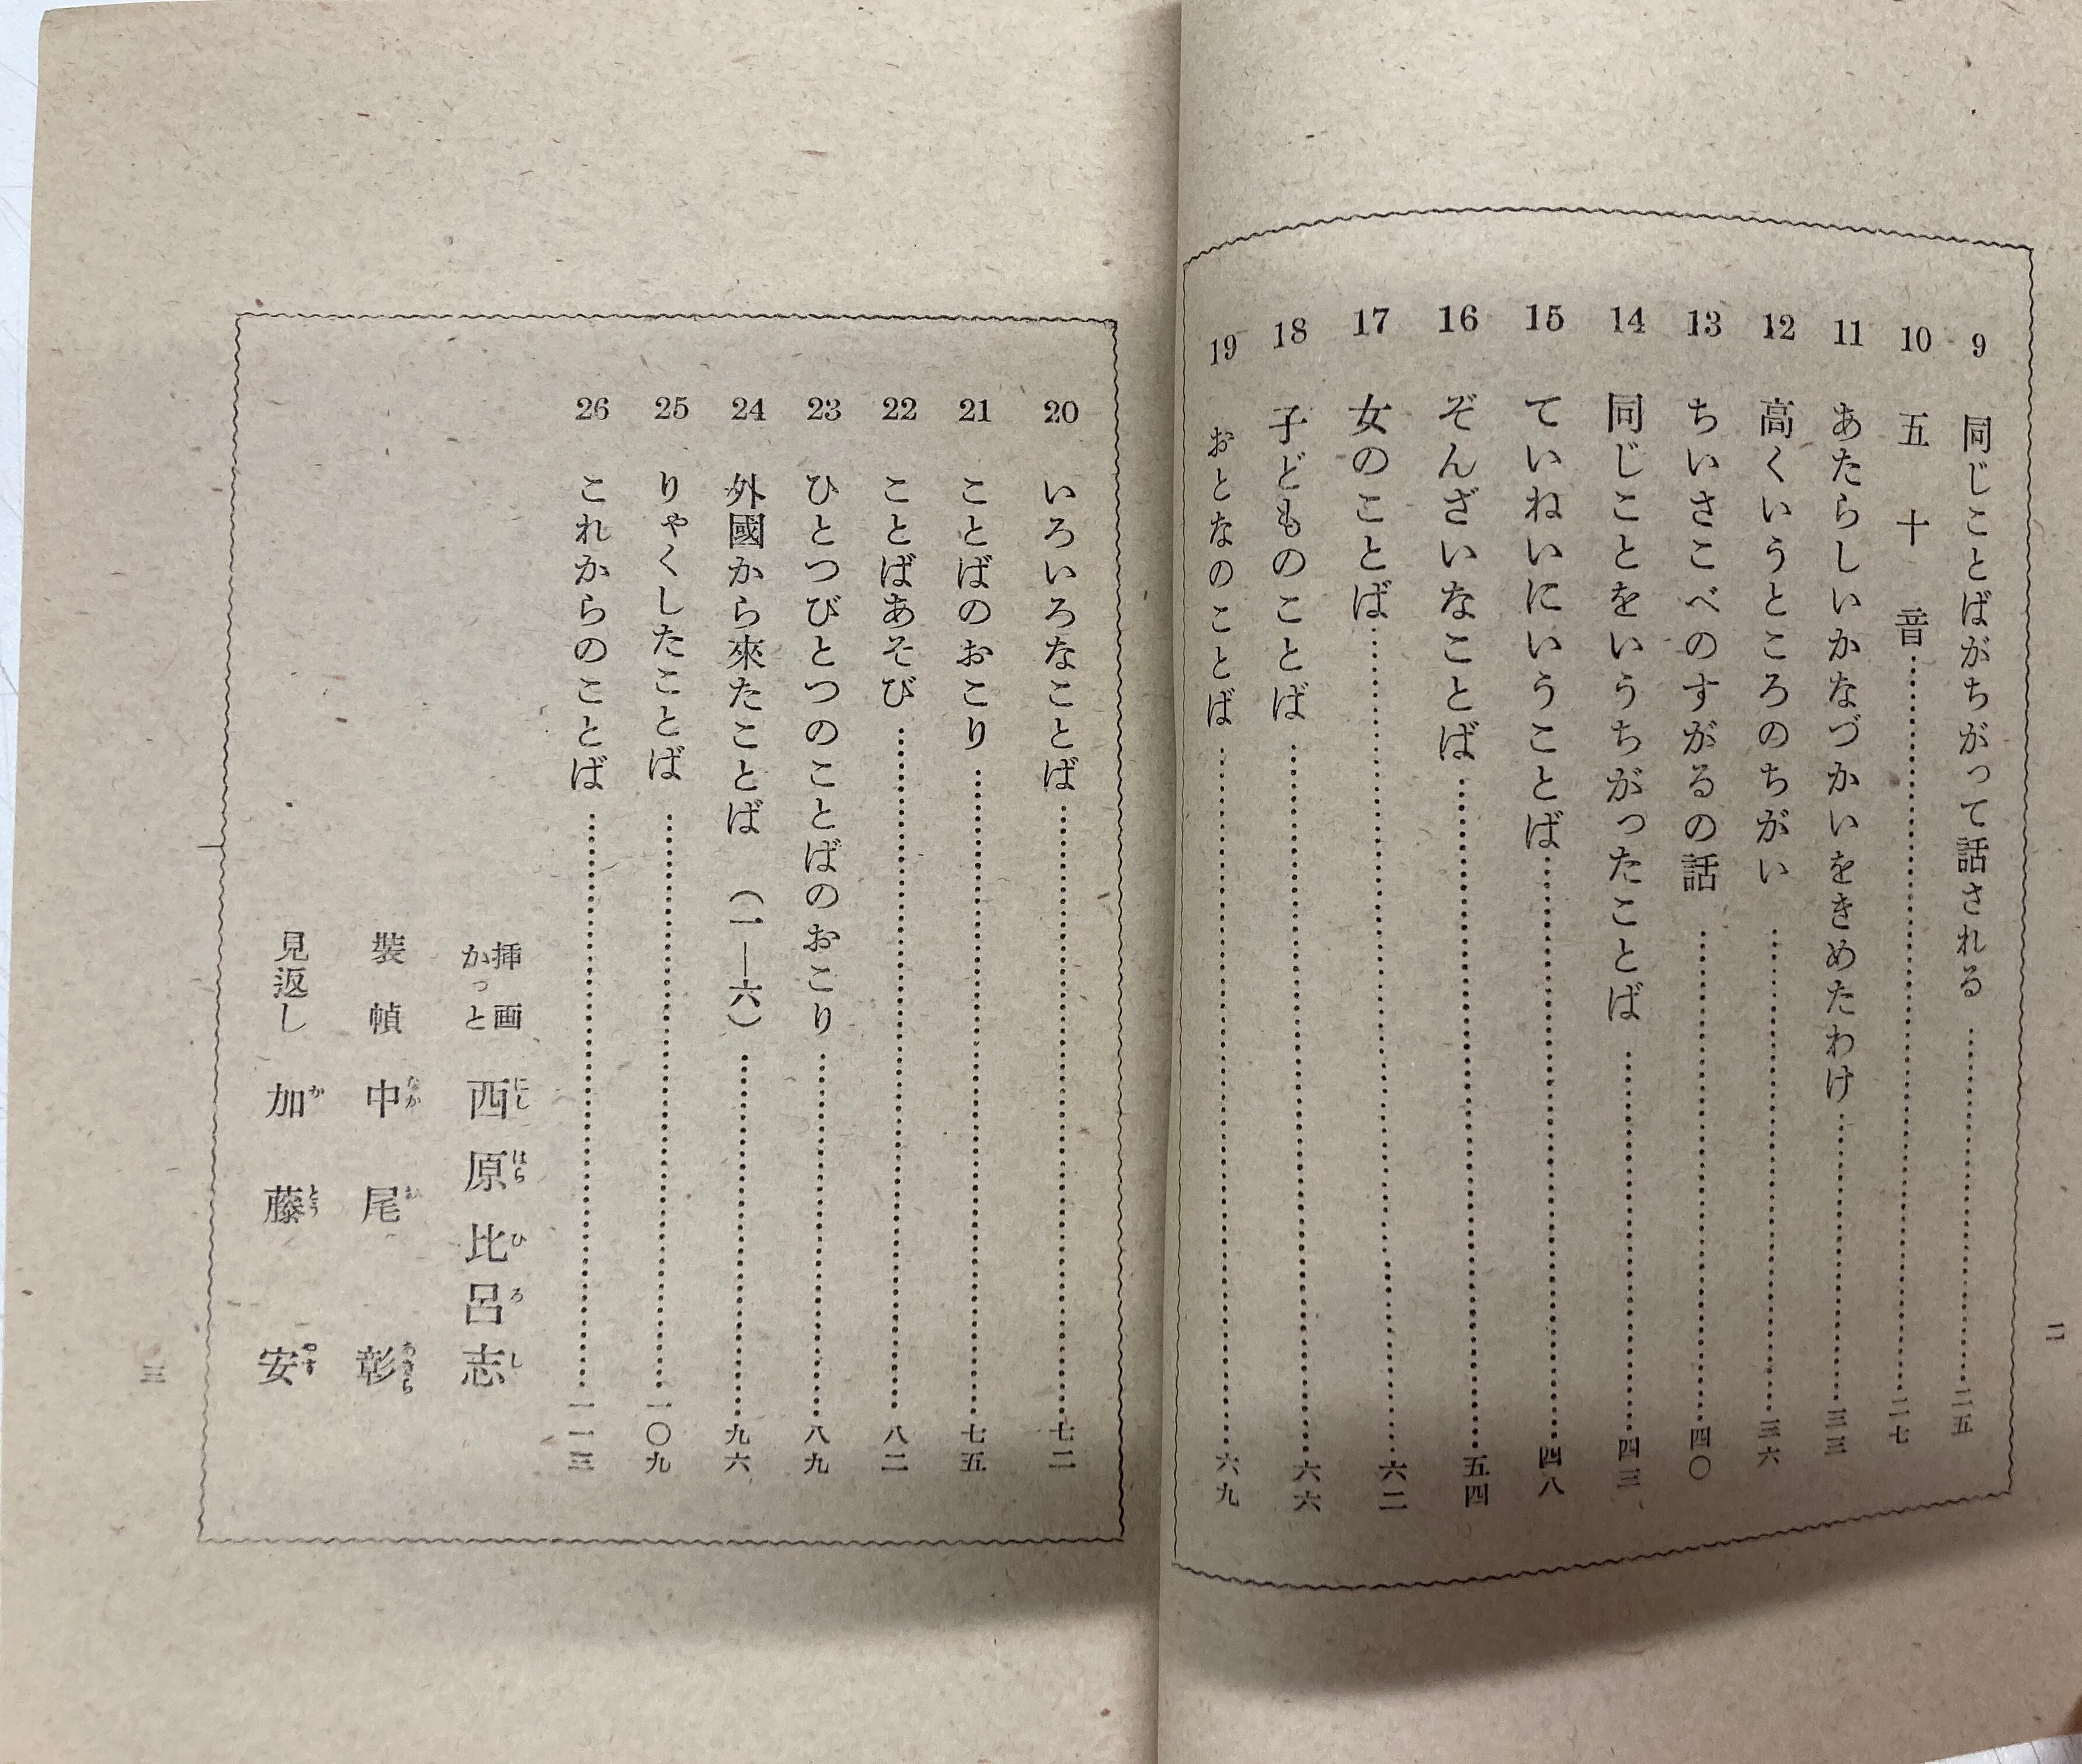 9 同じことばがちがって話される……二五
10 五十音……二七
11 あたらしいかなづかいをきめたわけ……三三
12 高くいうところのちがい……三六
13 ちいさこべのすがるの話……四〇
14 同じことをいうちがったことば……四三
15 ていねいにいうことば……四八
16 ぞんざいなことば……五四
17 女のことば……六二
18 子どものことば……六六
19 おとなのことば……六九
二
20 いろいろなことば……七二
21 ことばのおこり……七五
22 ことばあそび……八二
23 ひとつびとつのことばのおこり……八九
24 外國から來たことば（一—六）……九六
25 りゃくしたことば……一〇九
26 これからのことば……一一三
挿画
かっと
西原比呂志
にしはらひろし
裝幀 中尾彰
なかおあきら
見返し 加藤安
かとうやす
三